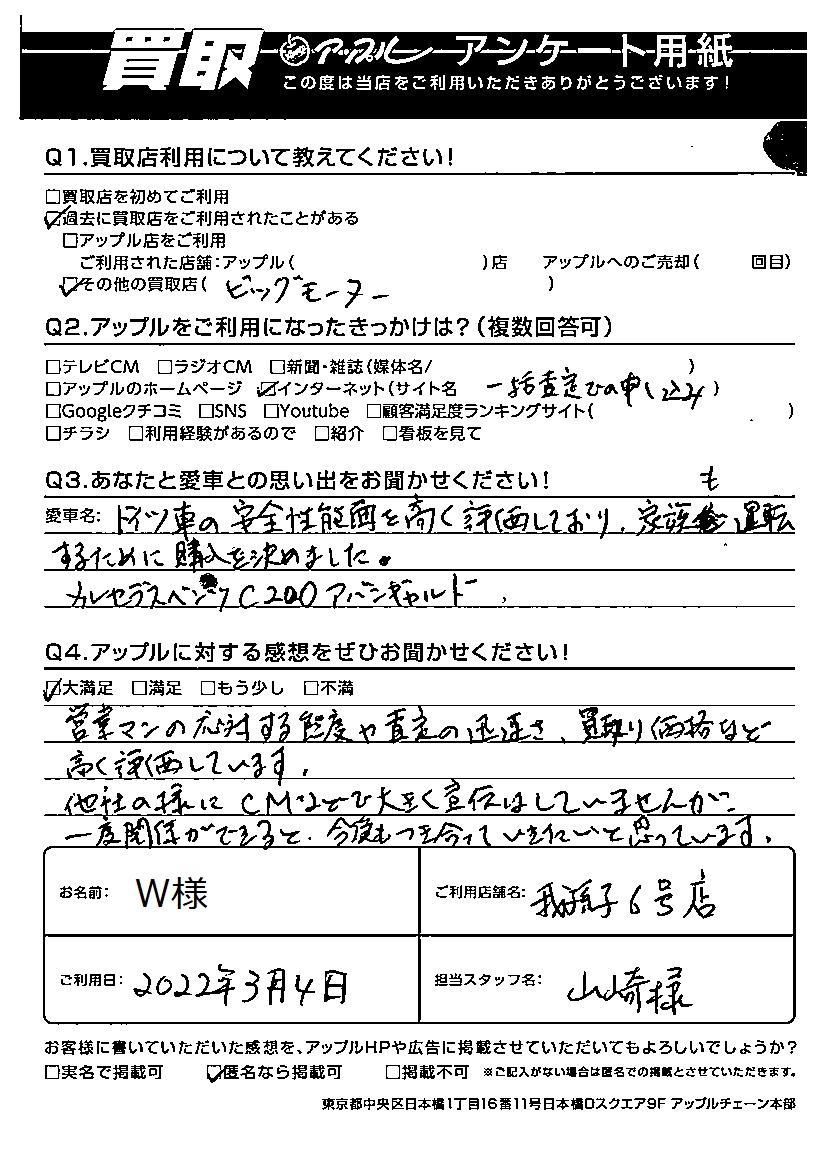 買取 アップル アンケート用紙
この度は当店をご利用いただきありがとうございます!
Q1.買取店利用について教えてください!
□買取店を初めてご利用
☑過去に買取店をご利用されたことがある
□アップル店をご利用
ご利用された店舗:アップル( )店 アップルへのご売却( 回目)
☑その他の買取店( ビッグモーター )
Q2.アップルをご利用になったきっかけは?(複数回答可)
□テレビCM □ラジオCM □新聞・雑誌(媒体名/ )
□アップルのホームページ ☑インターネット(サイト名 一括査定での申し込み )
□Googleクチコミ □SNS □Youtube □顧客満足度ランキングサイト( )
□チラシ □利用経験があるので □紹介 □看板を見て
Q3.あなたと愛車との思い出をお聞かせください!
愛車名: ドイツ車の安全性能面を高く評価しており、家族も運転
するために購入を決めました。
メルセデスベンツC200アバンギャルド
Q4.アップルに対する感想をぜひお聞かせください!
☑大満足 □満足 □もう少し □不満
営業マンの応対する態度や査定の迅速さ、買取り価格など
高く評価しています。
他社の様にCMなどで大きく宣伝はしていませんが、
一度関係ができると、今後もつき合っていきたいと思っています。
お名前: W様 ご利用店舗名: 我孫子6号店
ご利用日: 2022年3月4日 担当スタッフ名: 山崎様
お客様に書いていただいた感想を、アップルHPや広告に掲載させていただいてもよろしいでしょうか?
□実名で掲載可 ☑匿名なら掲載可 □掲載不可 ※ご記入がない場合は匿名での掲載とさせていただきます。
東京都中央区日本橋1丁目16番11号日本橋Dスクエア9F アップルチェーン本部